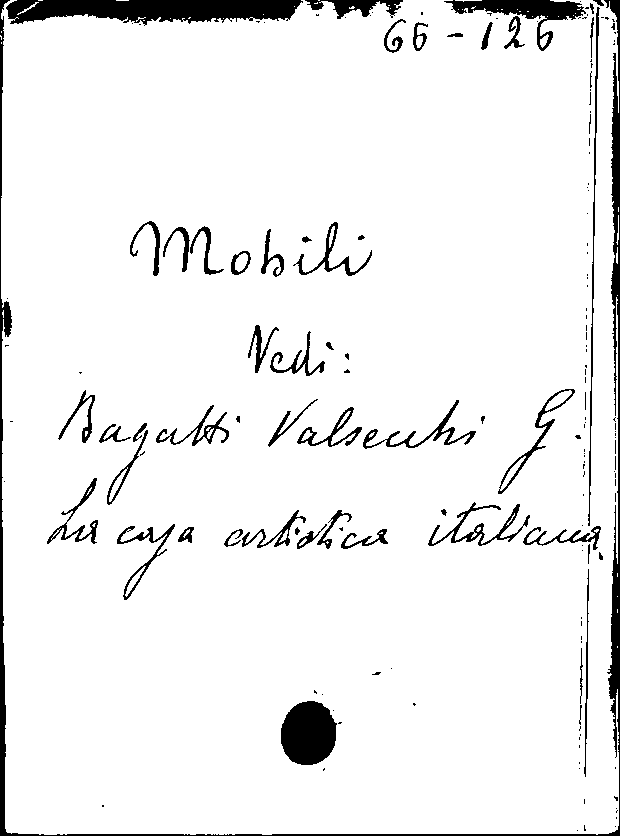 66-126
Mobili
Vedi:
Bagatti Valsecchi G.
La casa artistica italiana